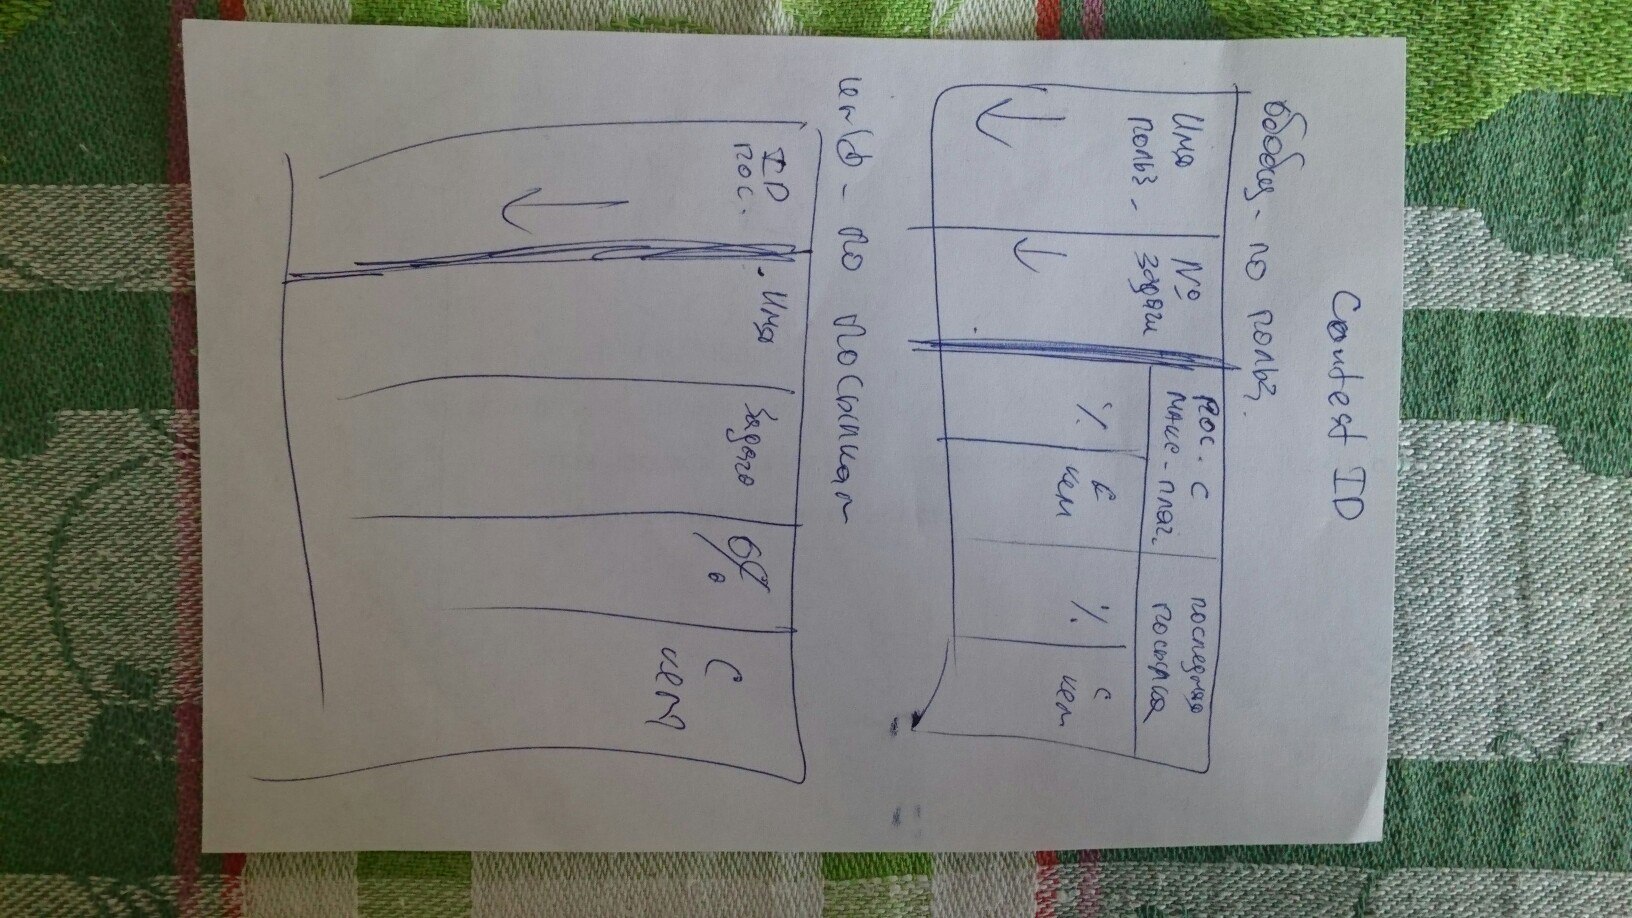 Contest ID
обобщ. по польз.
Имя
польз.
№
задачи
пос. с
макс. плаг.
последняя
посылка
% с
кем
% с
кем
инф. по посылкам
ID
пос.
Имя
Задача
%
С
кем